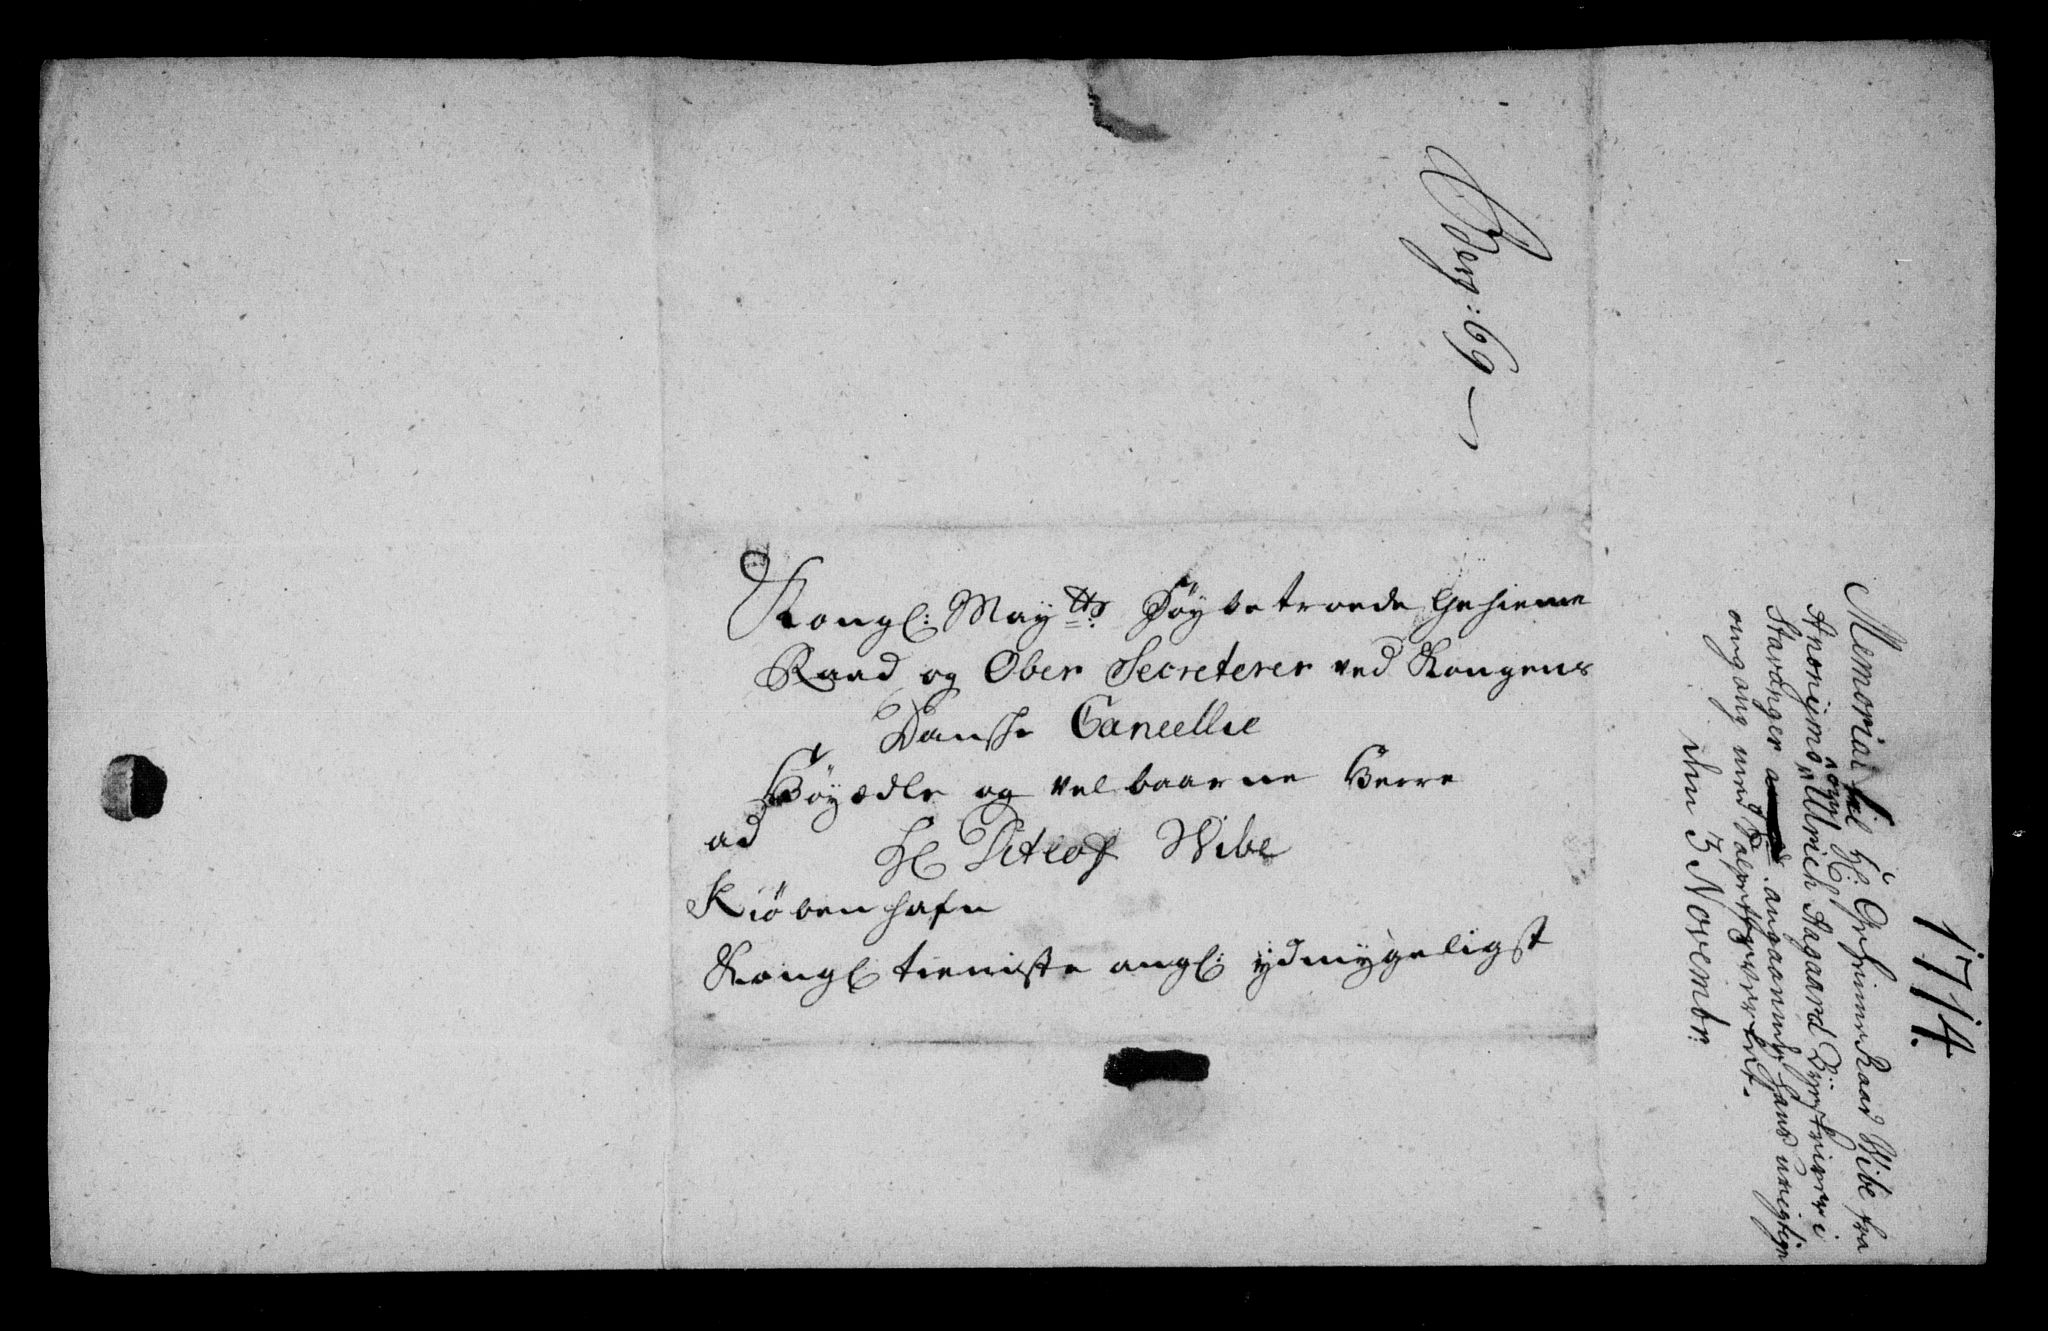 Berg: 69
Kongl: May^tts Höybetroede Geheime
Raad og Ober Secreterer ved Kongens
Danshe Cancellie
Höyædle og velbaarne Herre
ad
Hr Ditlof Wibe
Kiöbenhafn
Kongl tieniste angl: ydmygeligst
1714.
Memorial til Hr: Geheime Raad Wibe fra
Anonijmo over Hr Ullrich Aagaard Bijeskriver i
Stavanger angaaende hans urigtige
omgang med
den 3 Novembr: